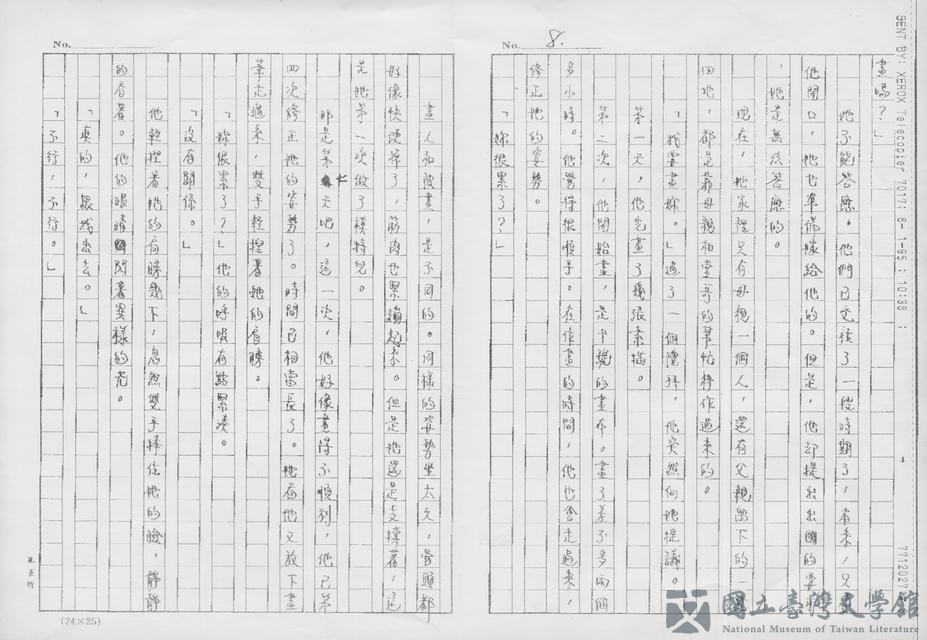 SENT BY: XEROX Telecopier 7017; 6- 1-95 ; 10:38 ;
7712027
No. 8.
畫嗎？」
她不能答應。他們已交往了一段時期了，看來，只要
他開口，她也準備嫁給他的。但是，他却提出出國的要
，她是無法答應的。
現在，她家裡只有母親一個人，還有父親留下的一
田地，都是靠母親和堂哥的幫忙耕作過來的。
「我要畫妳。」過了一個禮拜，他突然向她提議。
第一天，他先畫了幾張素描。
第二次，他開始畫，是十號的畫布。畫了差不多兩個
多小時。他覺得很順手。在作畫的時間，他也會走過來，
修正她的姿勢。
「妳很累了？」
No.
畫人和被畫，是不同的。同樣的姿勢坐太久，骨頭都
好像快硬掉了，筋肉也緊繃起來。但是她還是支撐著，這
是她第一次做了模特兒。
那是第七天吧，這一次，他好像畫得不順利，他已第
四次修正她的姿勢了。時間已相當長了。她看他又放下畫
筆走過來，雙手輕捏著她的肩膀。
「妳很累了？」他的呼吸有點緊湊。
「沒有關係。」
他輕捏著她的肩膀幾下，忽然雙手捧住她的臉，靜靜
的看著。他的眼睛閃著異樣的光。
「真的，跟我出去。」
「不行，不行。」
(24×25)
國立臺灣文學館
National Museum of Taiwan Literature